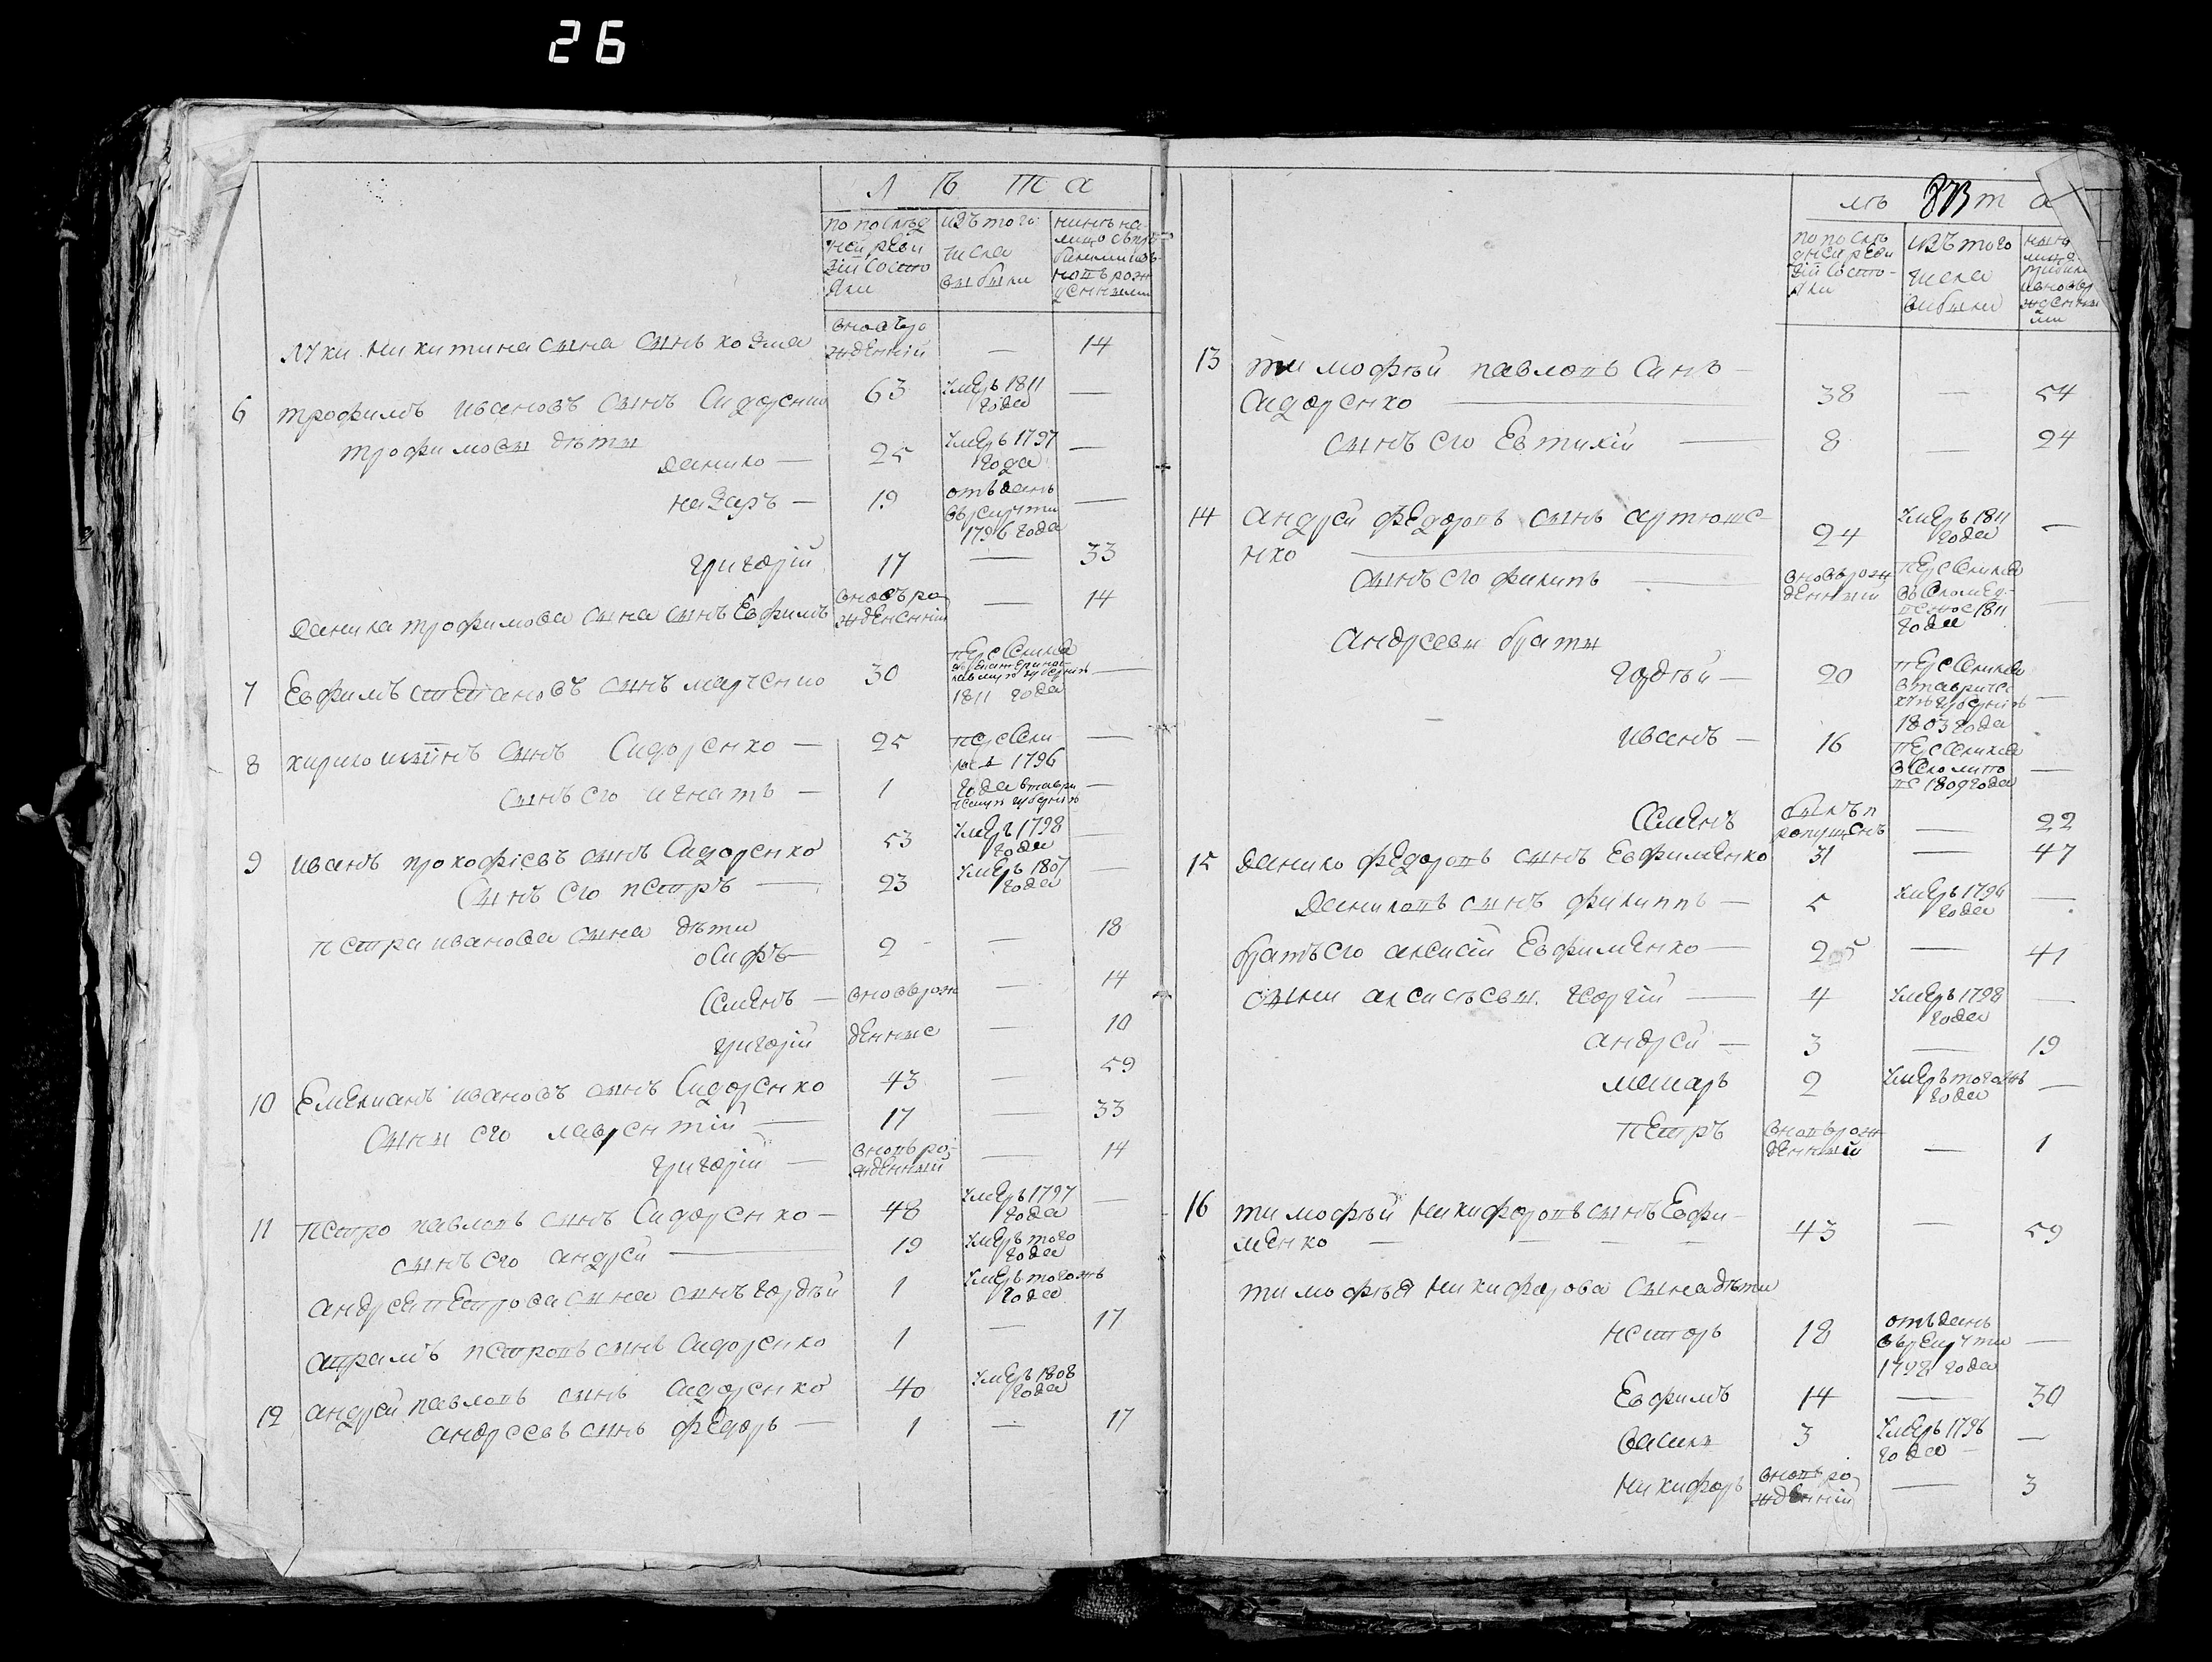 26
Л Ѣ Т А
по послѣд
ней реви
зіи состо
яли
изъ того
числа
выбыли
нинѣ на
лицо съ
рож
денними
Луки Никитина сына сынъ Козма
вновъ ро
жденній
—
14
6 Трофимъ Ивановъ сынъ Сидоренко 63 умеръ 1811 —
года
Трофимовы дѣты
Данило — 25 умеръ 1797 —
года
Назаръ — 19 отъданъ —
врекруты
1796 года
Григорій 17 — 33
Данила Трофимова сына сынъ Евфимъ вновъ ро — 14
жденній
7 Евфимъ Степановъ сынъ Марченко 30 переселился —
1811 года
8 Кирило сынъ Сидоренко — 25 пересели —
1796
сынъ его Игнатъ — 1 года втаври —
губернію
9 Иванъ Прокофіевъ сынъ Сидоренко 53 умеръ 1798 —
года
сынъ его Петръ — 23 умеръ 1807 —
года
Петра Иванова сына дѣти
Осифъ — 2 — 18
Семенъ — вноврож — 14
Григорій денные — 10
10 Емелианъ Ивановъ сынъ Сидоренко 43 — 59
сыны его Лаврентій — 17 — 33
Григорій — вновъ ро — 14
жденный
11 Петро Павловъ сынъ Сидоренко — 48 умеръ 1797 —
года
сынъ его Андрей — 19 умеръ того
года
Андрея Петрова сына сынъ Гордѣй 1 умеръ тогожъ
года
Петровъ сынъ Сидоренко 1 — 17
12 Андрей Павловъ сынъ Сидоренко 40 умеръ 1808
года
Андреевъ сынъ Федоръ — 1 — 17
лѣ та
по послѣ
дней реви
зіи состо-
яли
изъ того
числа
выбыли
13 Тимофѣй Павловъ синъ —
Сидоренко — 38 — 54
сынъ его Евтихій — 8 — 24
14 Андрей Федоровъ сынъ Артюше-
нко — 24 умеръ 1811 —
года
сынъ его Филипъ — вновърож переселился
денный 1811 —
годе
Андреевы браты
Гордѣй — 20 переселился
втавриче
губернію —
1803 года
Иванъ — 16 переселился
—
1809 года
Семенъ былъ п — 22
ропущенъ
15 Данило Федоровъ сынъ Евфименко 31 — 47
Даниловъ сынъ Филиппъ — 5 умеръ 1796 —
года
братъ его Алексій Евфименко — 25 — 41
сыни Алексѣевы Георгій — 4 умеръ 1798 —
года
Андрей — 3 — 19
Макаръ 2 умеръ тогожъ —
года
Петръ вновърож — 1
денный
16 Тимофѣй Никифоровъ сынъ Евфи-
менко — 43 — 59
Тимофѣя Никифорова сына дѣти
Несторъ 18 отъданъ
врекруты —
1798 года
Евфимъ 14 — 30
Василь 3 умеръ 1796 —
года
Никифоръ вновъ ро — 3
жденній